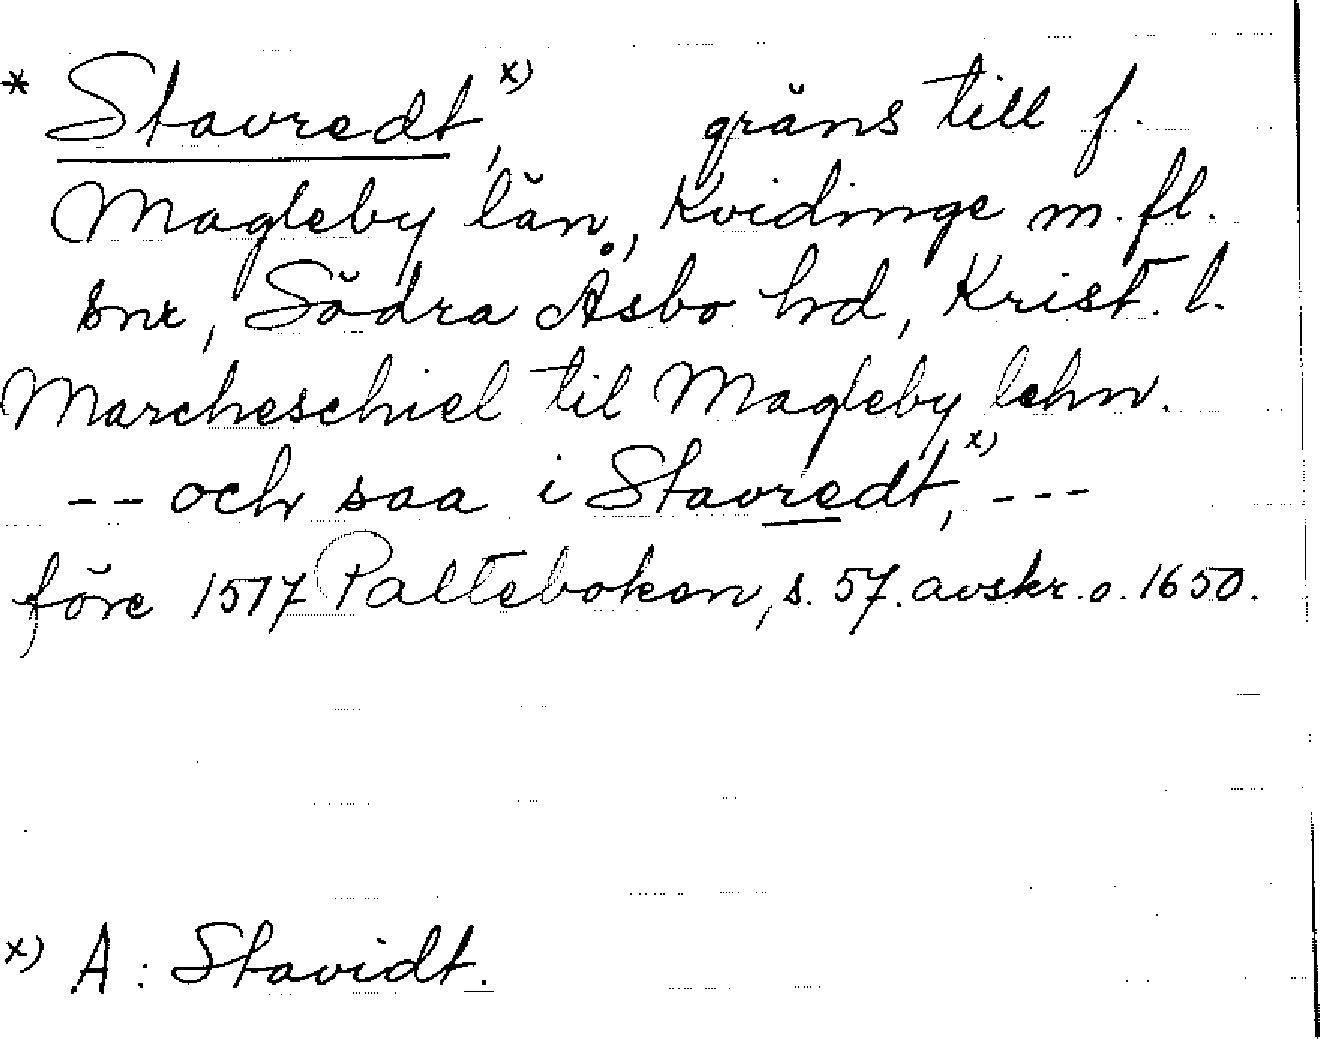 * Stavredt,x) gräns till f.
Magleby län, Kvidinge m. fl.
snr, Södra Åsbo hd, Krist. l.
Marcheschiel til Magleby lehn.
-- och saa i Stavredt,x) ---
före 1517 Palteboken, s. 57. avskr. o. 1650.
x) A: Stavidt.